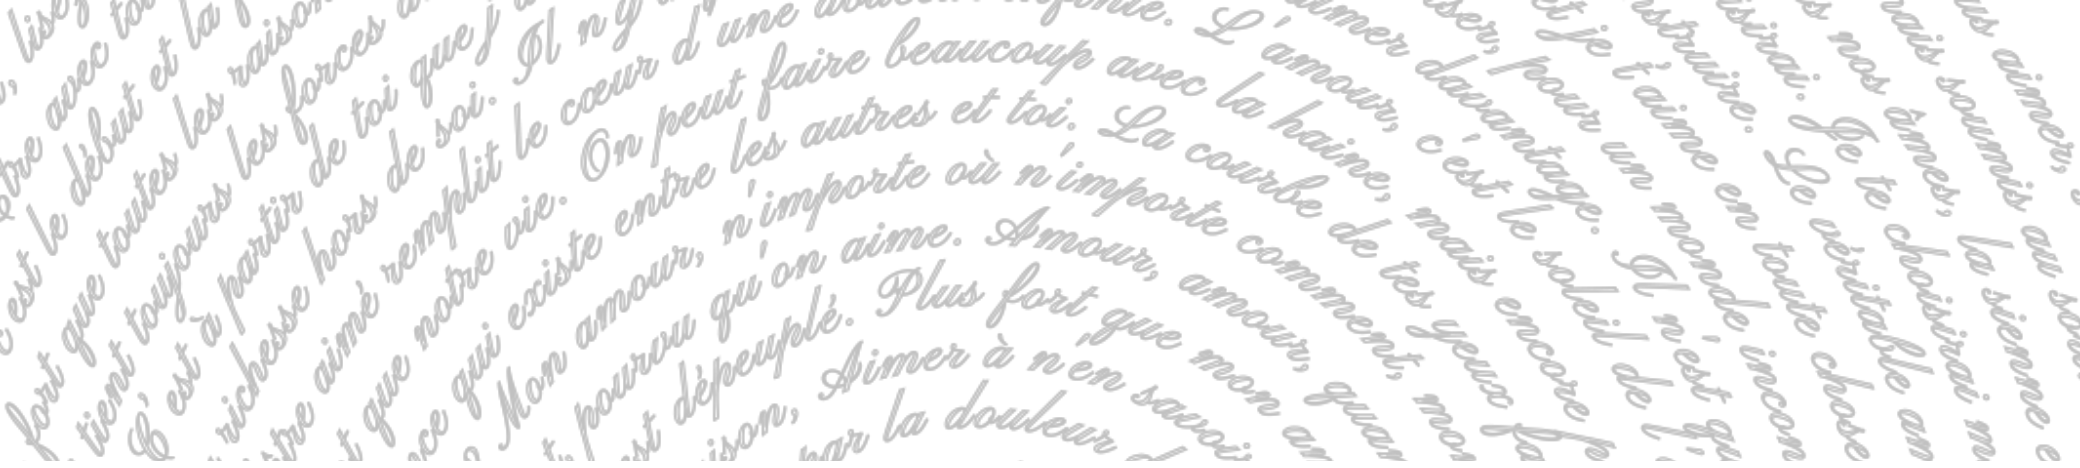 lise
avec
c'est le début et la
fort que toutes les
tient toujours les forces
C'est à partir de toi que j'
richesse hors de soi. Il n'y
aimé remplit le cœur d'une douceur infinie. L'amour, c'est le soleil de l'
que notre vie. On peut faire beaucoup avec la haine, mais encore
qui existe entre les autres et toi. La courbe de tes yeux
Mon amour, n'importe où n'importe comment,
pourvu qu'on aime. Amour, amour,
est dépeuplé. Plus fort que mon
Aimer à n'en savoir
par la douleur
aimer davantage. Il n'est
pour un monde
et je t'aime en toute chose
Le véritable
Je te choisirai
nos âmes, la sienne
soumis au
aimer,